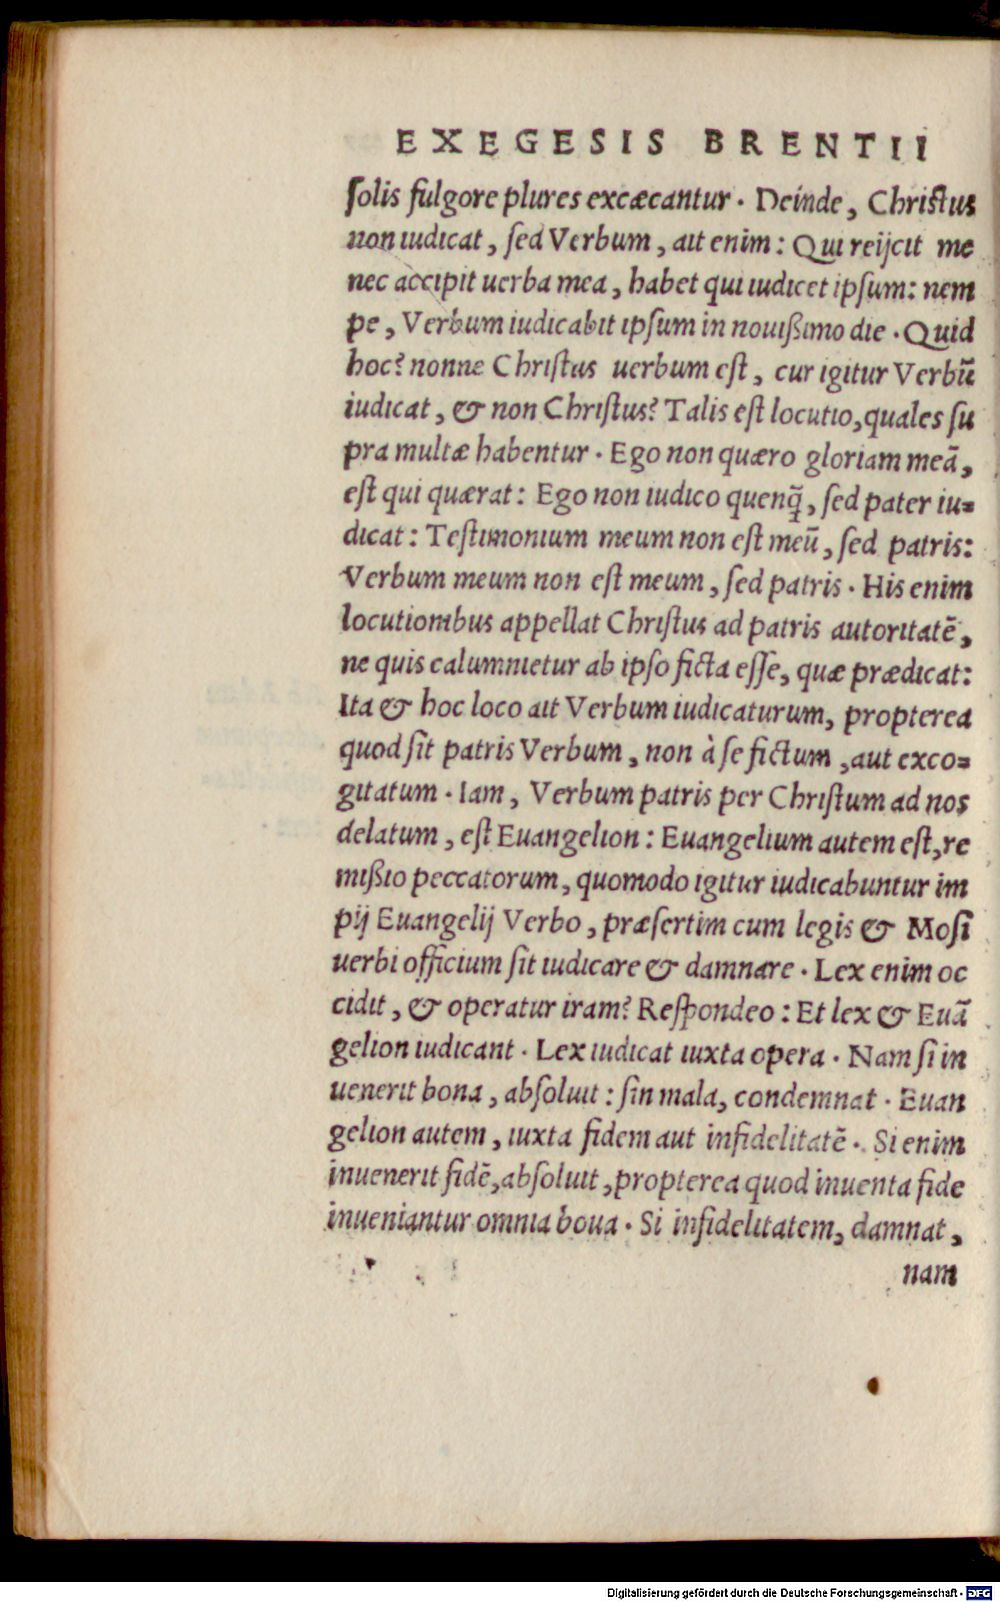 EXEGESIS BRENTII
ſolis fulgore plures excæcantur. Deinde, Chriſtus
non iudicat, ſed Verbum, ait enim: Qui reijcit me
nec accipit uerba mea, habet qui iudicet ipſum: nem
pe, Verbum iudicabit ipſum in nouißimo die. Quid
hoc? nonne Chriſtus uerbum eſt, cur igitur Verbũ
iudicat, & non Chriſtus? Talis eſt locutio, quales ſu
pra multæ habentur. Ego non quæro gloriam meã,
eſt qui quærat: Ego non iudico quenq̃, ſed pater iu=
dicat: Teſtimonium meum non eſt meũ, ſed patris:
Verbum meum non eſt meum, ſed patris. His enim
locutionibus appellat Chriſtus ad patris autoritatẽ,
ne quis calumnietur ab ipſo ficta eſſe, quæ prædicat:
Ita & hoc loco ait Verbum iudicaturum, propterea
quod ſit patris Verbum, non à ſe fictum, aut exco=
gitatum. Iam, Verbum patris per Chriſtum ad nos
delatum, eſt Euangelion: Euangelium autem eſt, re
mißio peccatorum, quomodo igitur iudicabuntur im
pij Euangelij Verbo, præſertim cum legis & Moſi
uerbi officium ſit iudicare & damnare. Lex enim oc
cidit, & operatur iram? Reſpondeo: Et lex & Euã
gelion iudicant. Lex iudicat iuxta opera. Nam ſi in
uenerit bona, abſoluit: ſin mala, condemnat. Euan
gelion autem, iuxta fidem aut infidelitatẽ. Si enim
inuenerit fidẽ, abſoluit, propterea quod inuenta fide
inueniantur omnia boua. Si infidelitatem, damnat,
nam
Digitalisierung gefördert durch die Deutsche Forschungsgemeinschaft - DFG